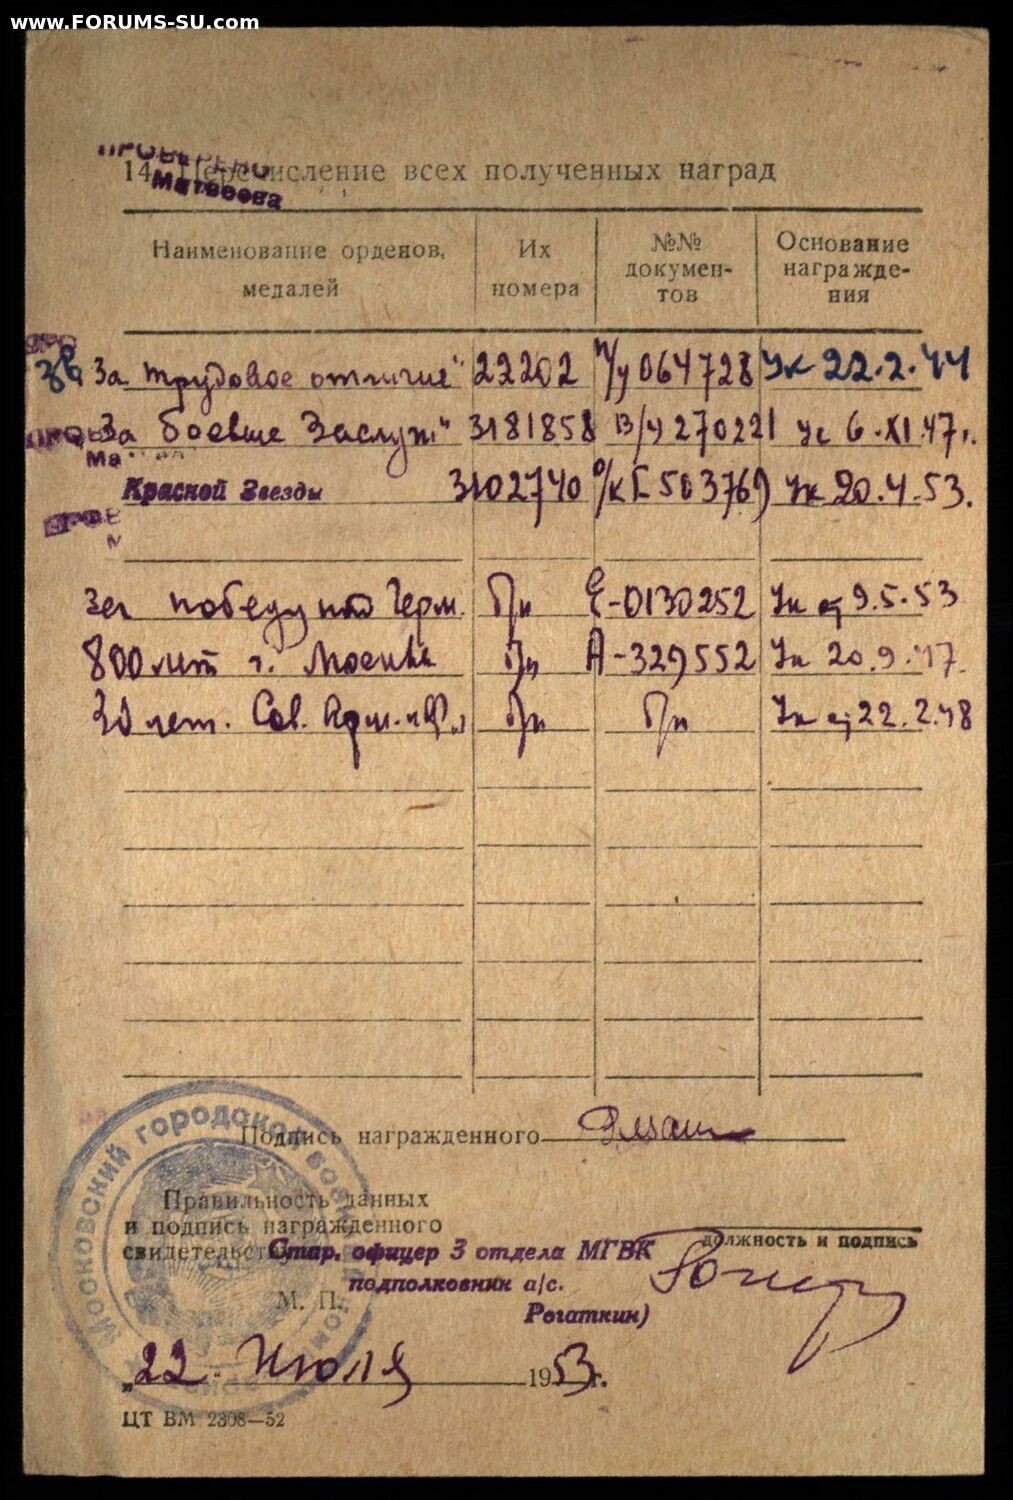 www.FORUMS-SU.com
ПРОВЕРЕНО
Матвеева
14. Перечисление всех полученных наград
Наименование орденов, медалей
Их номера
№№ докумен-тов
Основание награжде-ния
За трудовое отличие" 22202 064728 Ук 22.2.44
За боевые Заслуг" 3181858 В/У 270221 Ук 6.XI.47г.
Красной Звезды 3102740 503769 Ук 20.4.53.
За победу над Герм. Е-0130252 9.5.53
800 лет г. Москвы А-329552 Ук 20.9.47.
30 лет. Сов. Арм. и Ф. 22.2.48
Подпись награжденного
Правильность данных
и подпись награжденного
свидетельст
Стар. офицер 3 отдела МГВК
должность и подпись
подполковник а/с.
М. П.
Рогаткин)
Московский городской
„22. Июля 1953 г.
ЦТ ВМ 2308—52